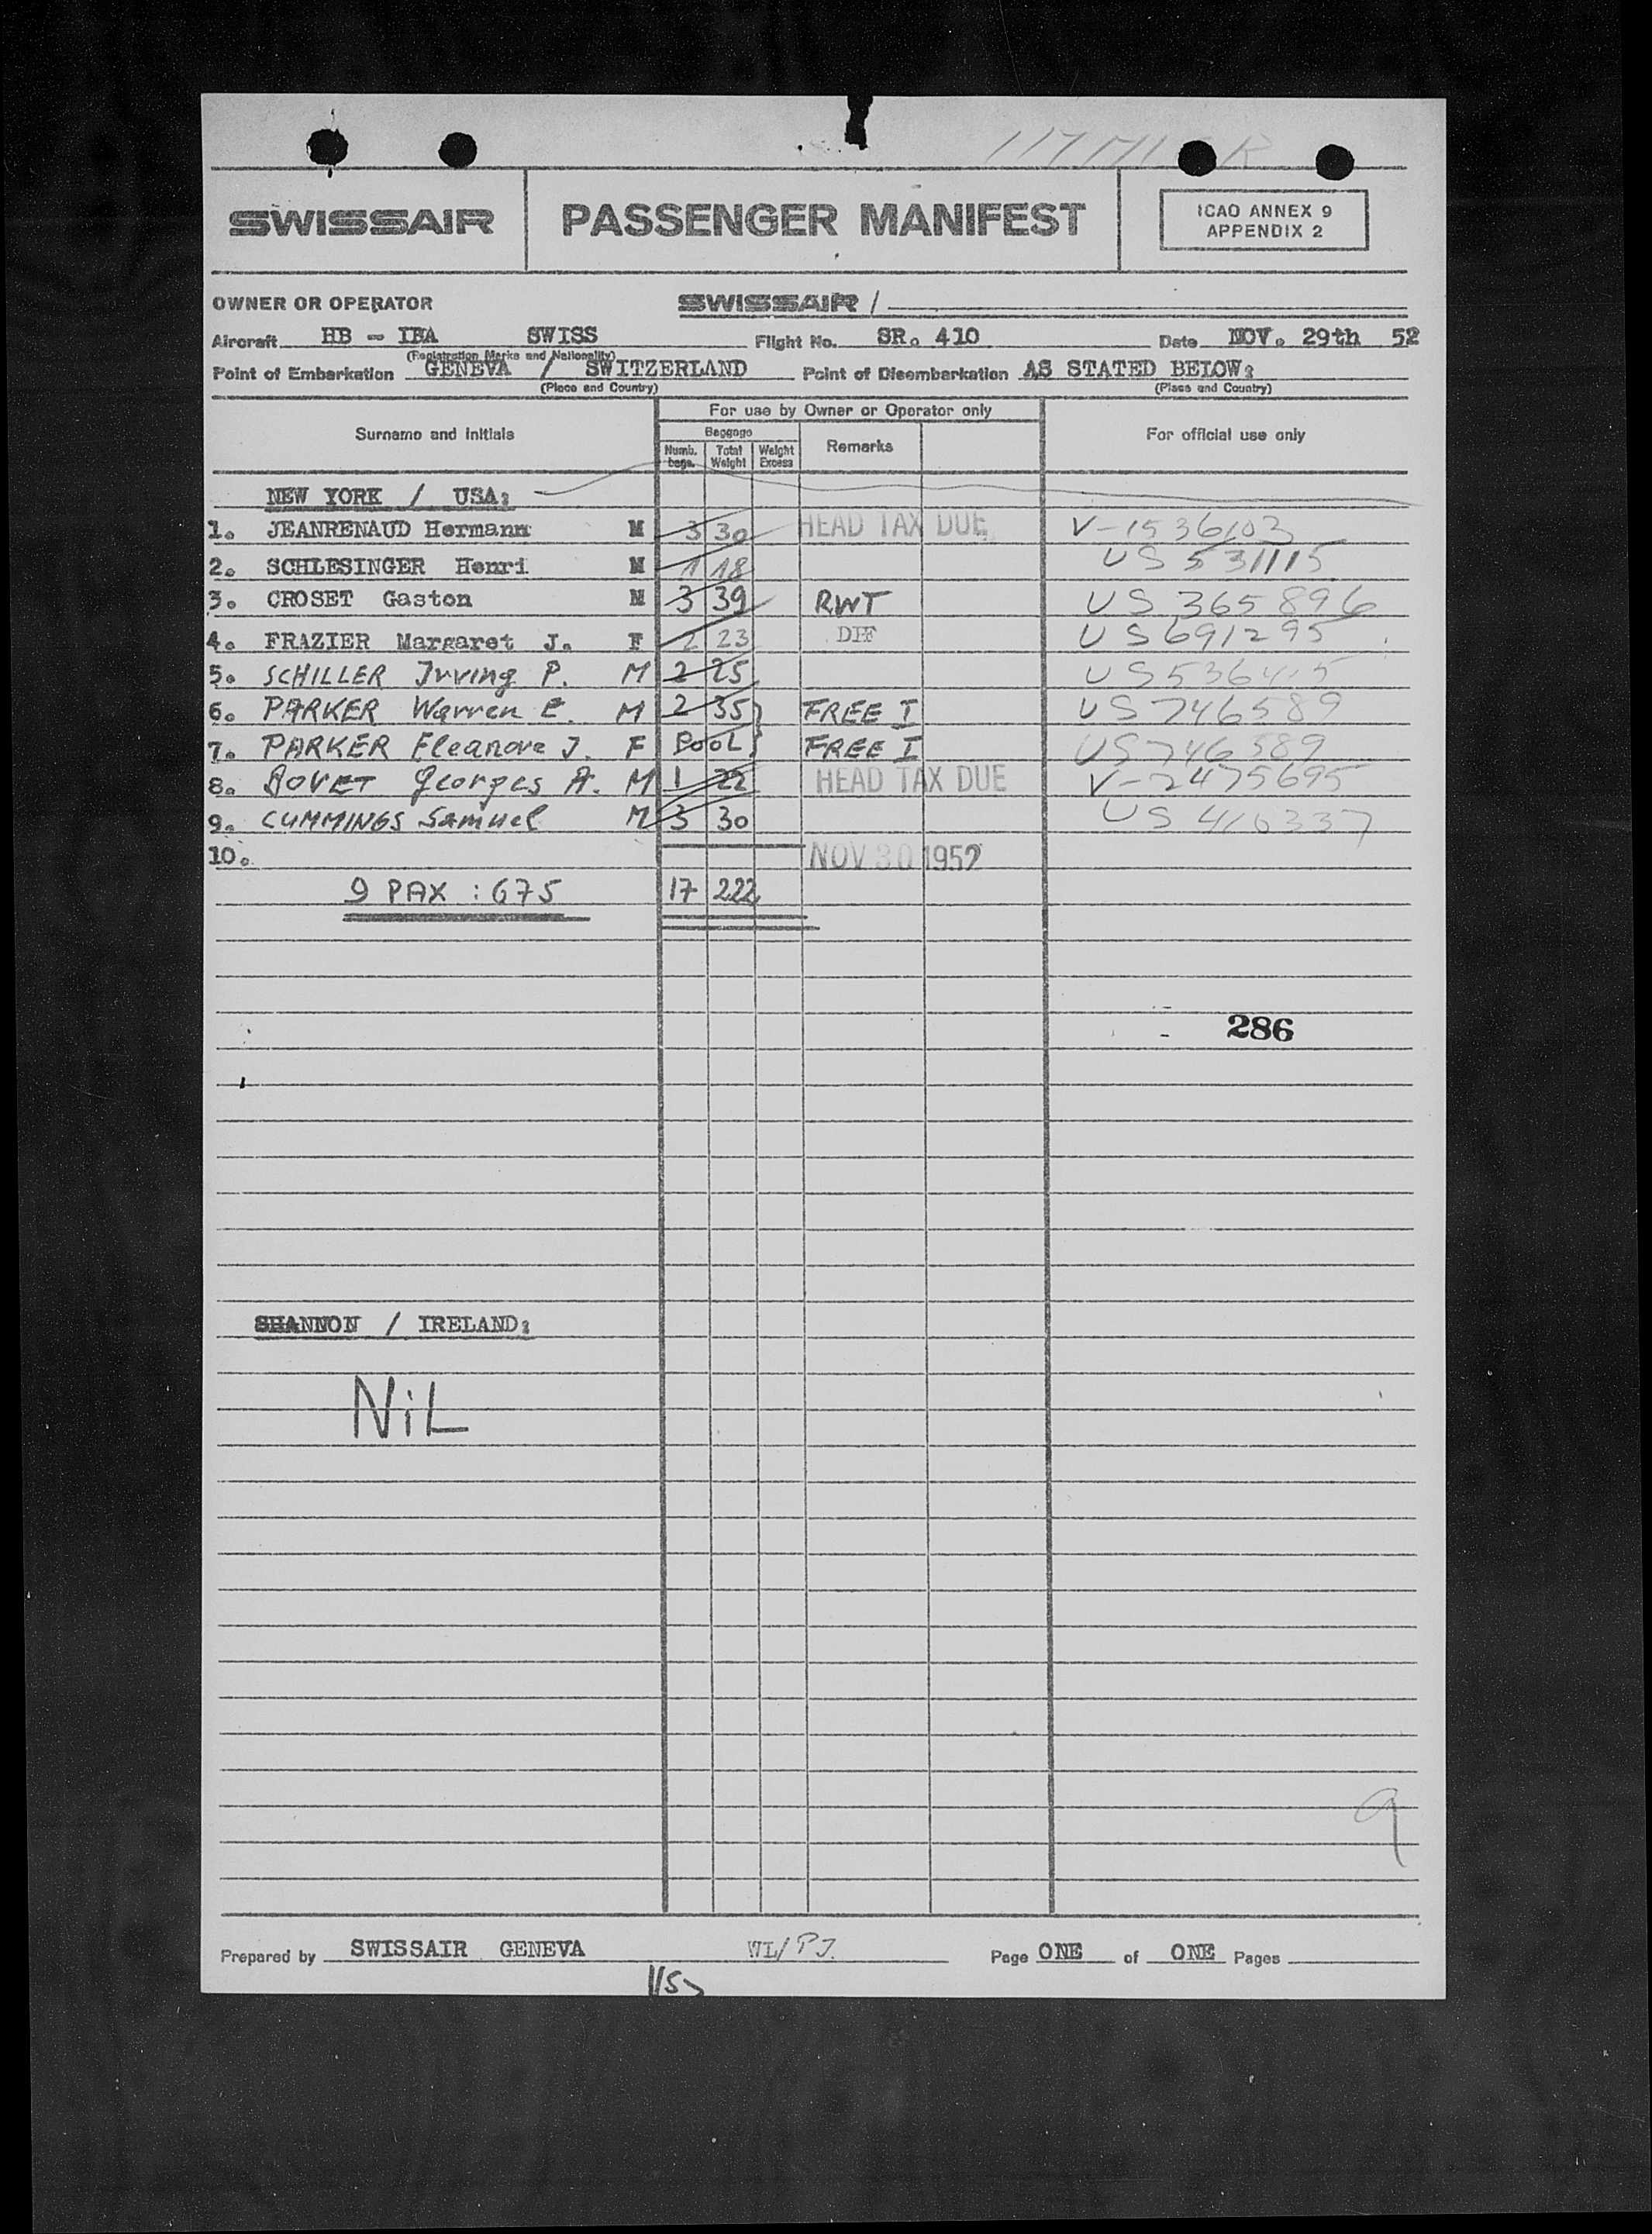 SWISSAIR
PASSENGER MANIFEST
ICAO ANNEX 9
APPENDIX 2
OWNER OR OPERATOR SWISSAIR /
Aircraft HB - IBA SWISS Flight No. SR. 410 Date NOV. 29th 52
(Registration Marks and Nationality)
Point of Embarkation GENEVA / SWITZERLAND Point of Disembarkation AS STATED BELOW:
(Place and Country) (Place and Country)
Surname and Initials
For use by Owner or Operator only
Baggage
Numb. bags. Total Weight Weight Excess
Remarks
For official use only
NEW YORK / USA:
1. JEANRENAUD Hermann M 3 30 HEAD TAX DUE V-1536103
2. SCHLESINGER Henri M 1 18 US 531115
3. CROSET Gaston M 3 39 RWT US 365896
4. FRAZIER Margaret J. F 2 23 DIF US 691295
5. SCHILLER Irving P. M 2 25
6. PARKER Warren E. M 2 35 FREE I US 746589
7. PARKER Eleanore J. F POOL FREE I US 746589
8. BOVET Georges A. M 1 22 HEAD TAX DUE V-2475695
9. CUMMINGS Samuel M 3 30 US 416337
10. NOV 30 1952
9 PAX : 675 17 222
286
SHANNON / IRELAND:
NiL
9
Prepared by SWISSAIR GENEVA WL/PJ. Page ONE of ONE Pages